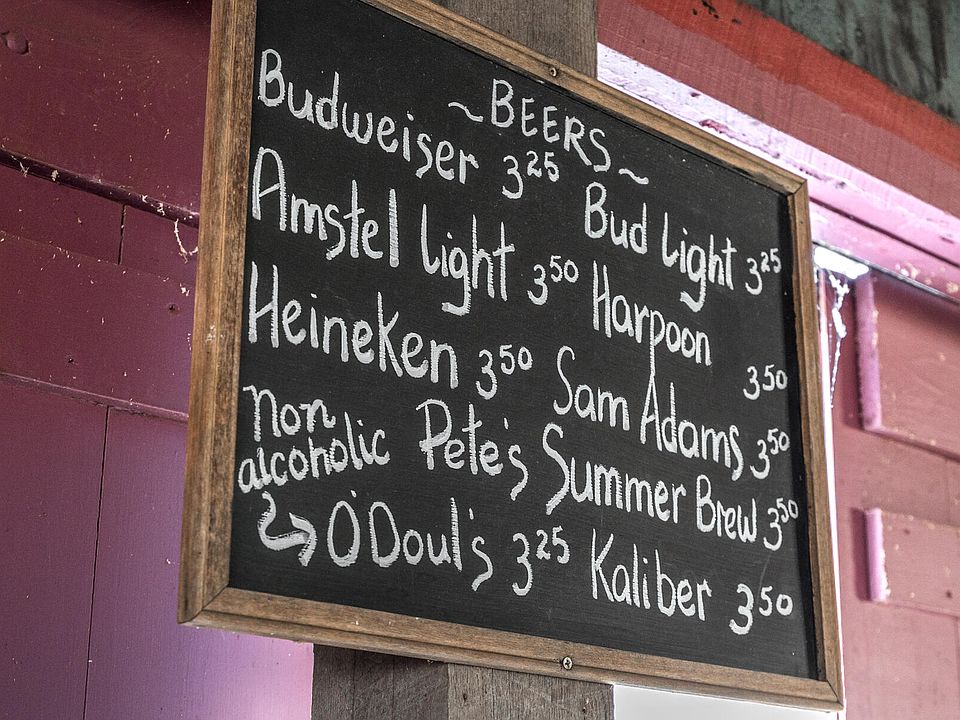 ~ BEERS ~
Budweiser 3 25 Bud Light 3 25
Amstel Light 3 50 Harpoon 3 50
Heineken 3 50 Sam Adams 3 50
Pete's Summer Brew 3 50
non
alcoholic
O'Doul's 3 25 Kaliber 3 50